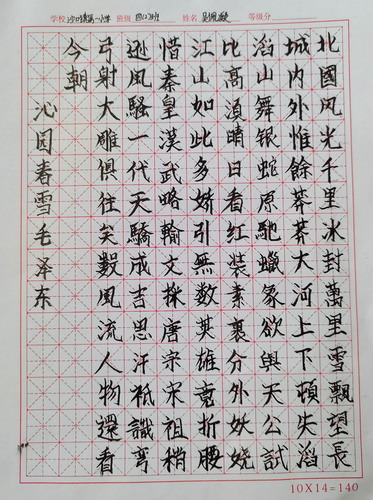 学校 班级 姓名 等级分
北國风光千里冰封萬里雪飄望長
城内外惟餘莽莽大河上下頓失滔
滔山舞银蛇原馳蠟象欲與天公試
比高須晴日看红装素裹分外妖娆
江山如此多娇引無数英雄竞折腰
惜秦皇漢武略輸文採唐宗宋祖稍
逊風騷一代天驕成吉思汗祗識弯
弓射大雕俱往矣數風流人物還看
今朝
沁园春雪毛泽东
10X14=140